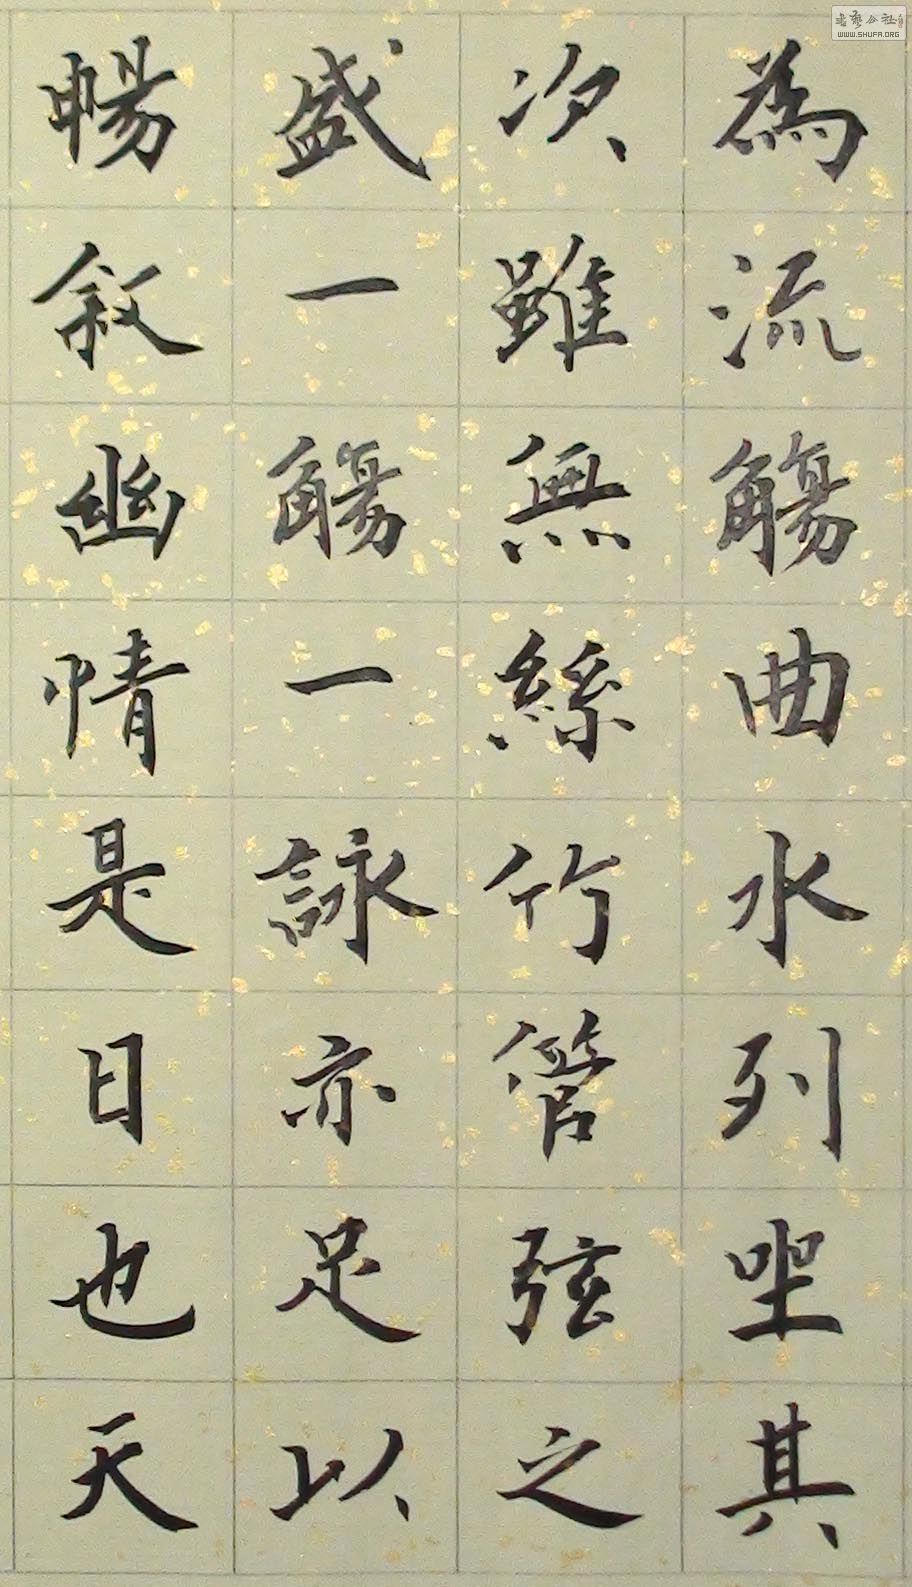 為流觴曲水列坐其
次雖無絲竹管弦之
盛一觴一詠亦足以
暢叙幽情是日也天
書藝公社
WWW.SHUFA.ORG